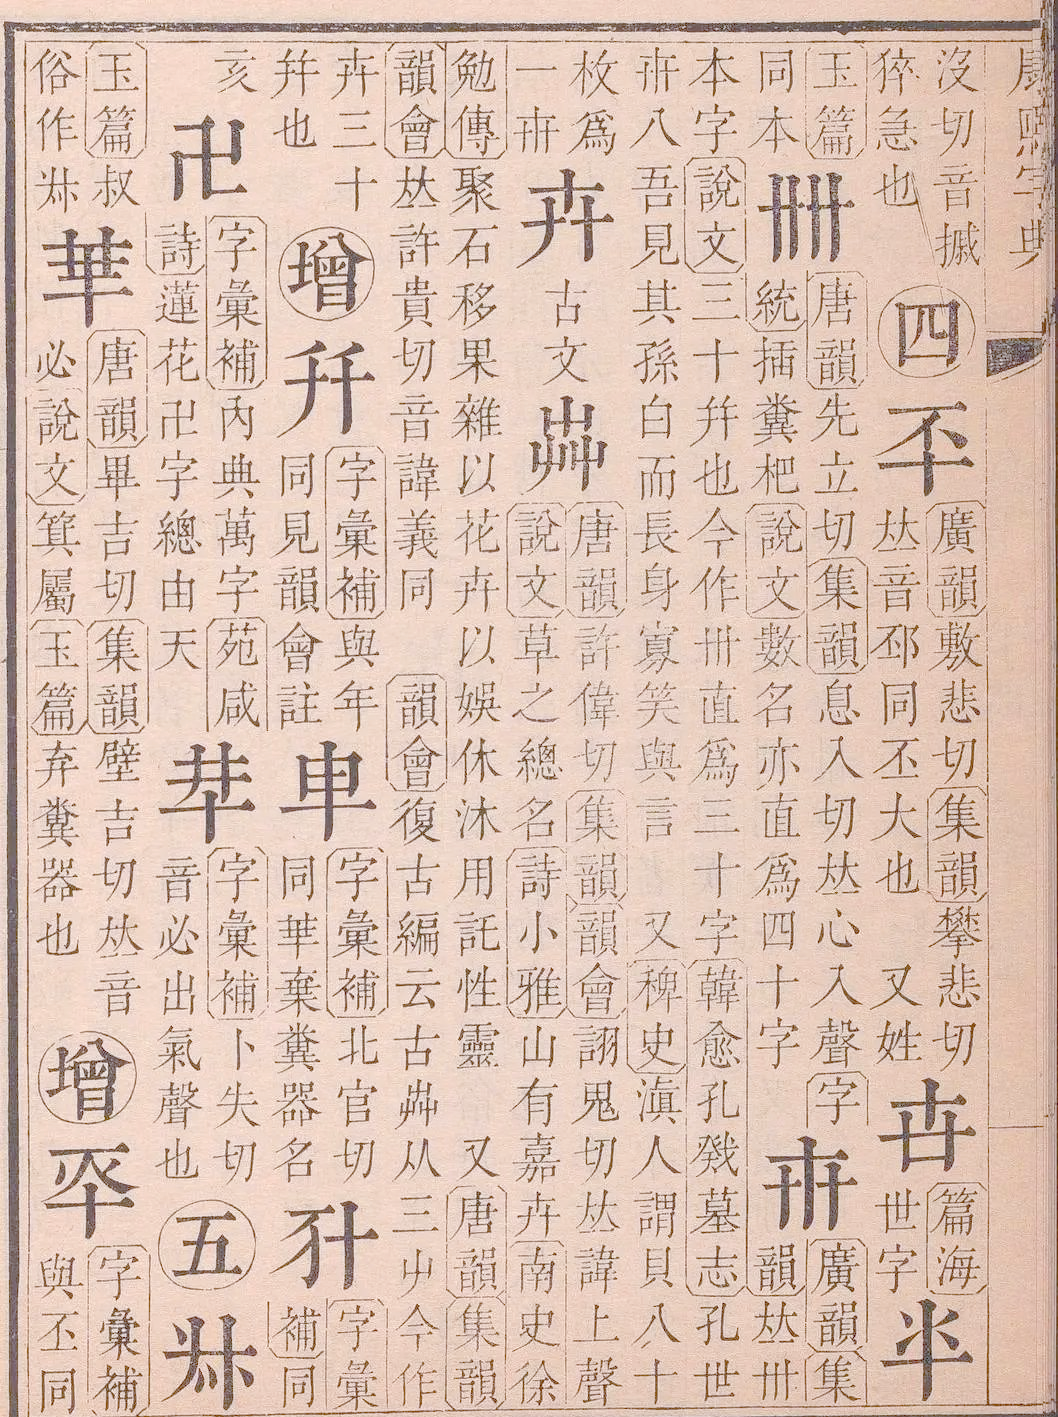 康熙字典
沒切音摵
猝急也
四
㔻
廣韻敷悲切集韻攀悲切
𠀤音邳同丕大也 又姓
卋
篇海
世字
玉篇
同本
卌
唐韻先立切集韻息入切𠀤心入聲字
統插糞杷說文數名亦直爲四十字
𠦃
廣韻集
韻𠀤卅
本字說文三十幷也今作卅直爲三十字韓愈孔戣墓志孔世
𠦃八吾見其孫白而長身寡笑與言 又稗史滇人謂貝八十
枚爲
一𠦃
卉
古文
芔
唐韻許偉切集韻韻會詡鬼切𠀤諱上聲
說文草之總名詩小雅山有嘉卉南史徐
勉傳聚石移果雜以花卉以娛休沐用託性靈 又唐韻集韻
韻會𠀤許貴切音諱義同 韻會復古編云古芔从三屮今作
卉三十
幷也
增
字彙補與年
同見韻會註
字彙補北官切
同𠦒棄糞器名
字彙
補同
亥
卍
字彙補內典萬字苑咸
詩蓮花卍字總由天
字彙補卜失切
音必出氣聲也
五
𠦑
玉篇叔
俗作𠦑
𠦒
唐韻畢吉切集韻壁吉切𠀤音
必說文箕屬玉篇弃糞器也
增
字彙補
與丕同